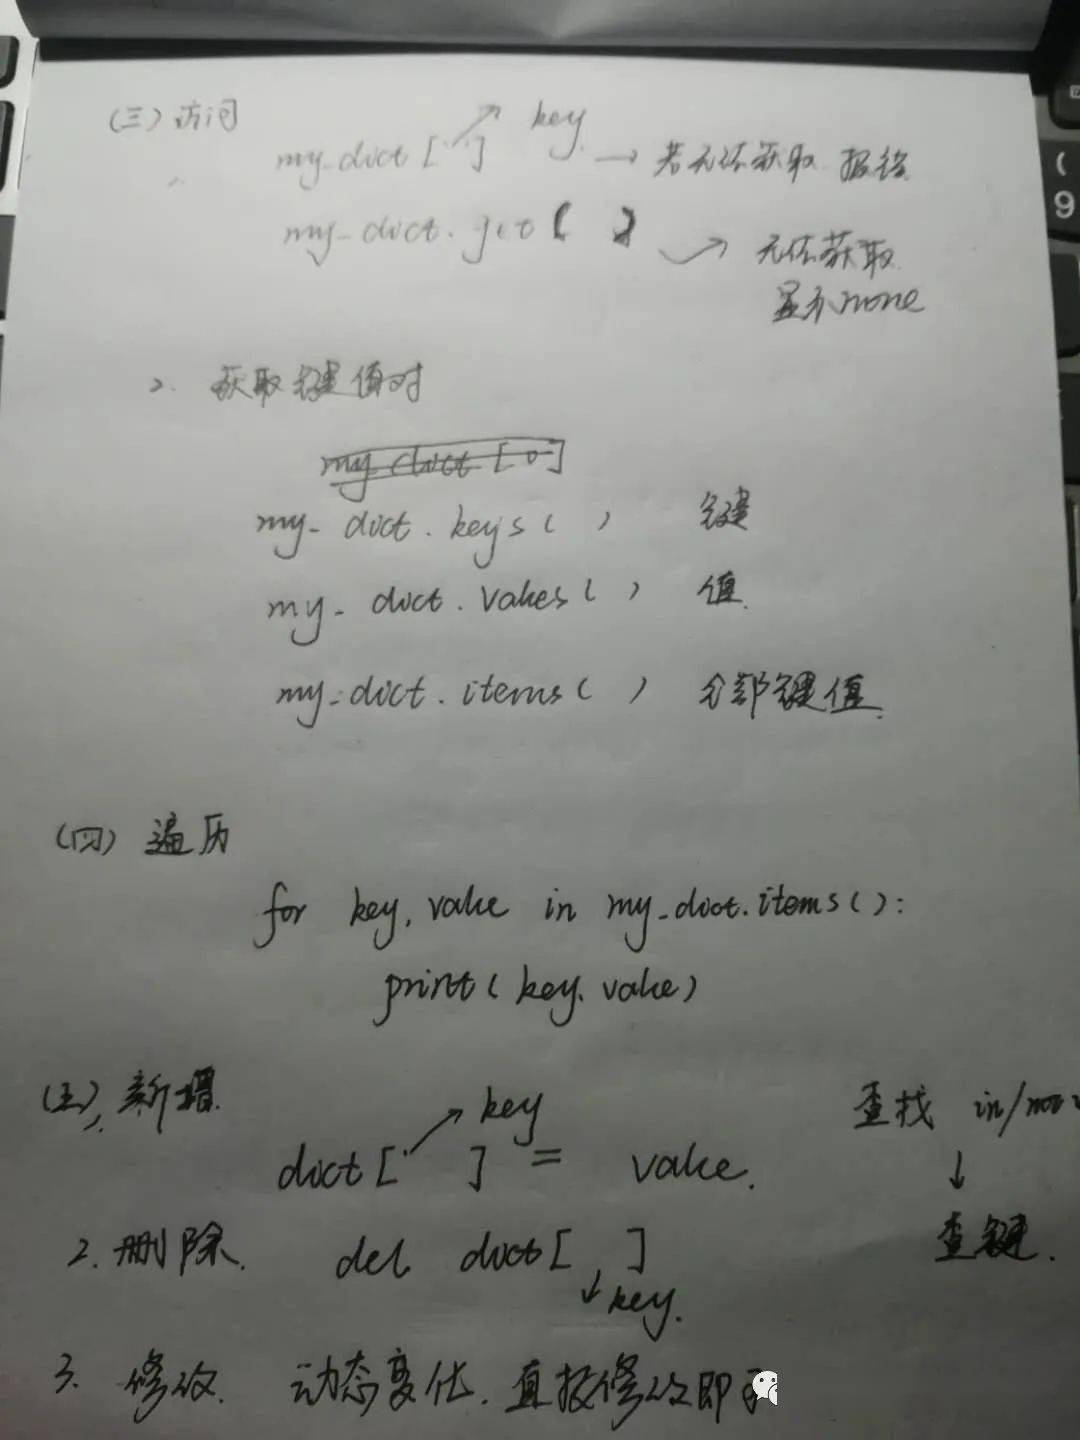 (三) 访问
my_dict [ ] key → 若无法获取 报错
my_dict.get ( ) → 无法获取
显示none
2. 获取键值对
my dict [0]
my_dict.keys ( ) 键
my_dict.values ( ) 值
my_dict.items ( ) 全部键值
(四) 遍历
for key, value in my_dict.items():
print(key, value)
(五) 新增
key
dict [ ] = value.
查找 in/not
↓
查键.
2. 删除. del dict [ ]
key.
3. 修改. 动态变化. 直接修改即可
9